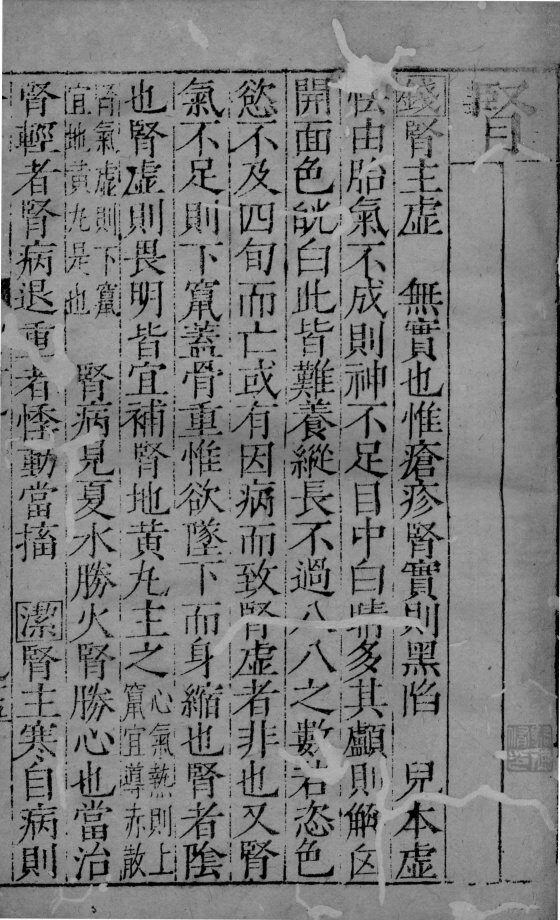 腎
錢腎主虛　無實也惟瘡疹腎實則黑陷　兒本虛
怯由胎氣不成則神不足目中白睛多其顱則解囟
開面色㿠白此皆難養縱長不過八八之數若恣色
慾不及四旬而亡或有因病而致腎虛者非也又腎
氣不足則下竄蓋骨重惟欲墜下而身縮也腎者陰
也腎虛則畏明皆宜補腎地黃丸主之心氣熱則上
竄宜導赤散
腎氣虛則下竄
宜地黃丸是也　腎病見夏水勝火腎勝心也當治
腎輕者腎病退重者悸動當搐　潔腎主寒自病則